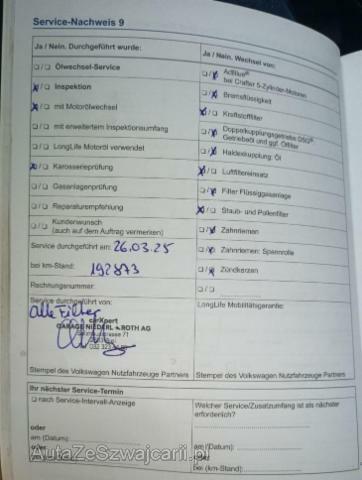 Service-Nachweis 9
Ja / Nein. Durchgeführt wurde:
Ölwechsel-Service
Inspektion
mit Motorölwechsel
mit erweitertem Inspektionsumfang
LongLife Motoröl verwendet
Karosserieprüfung
Gasanlagenprüfung
Reparaturempfehlung
Kundenwunsch
(auch auf dem Auftrag vermerken)
Service durchgeführt am: 26.03.25
bei km-Stand: 192873
Rechnungsnummer:
Service durchgeführt von:
alle Filter
carXpert
GARAGE NIEDERL & ROTH AG
Stempel des Volkswagen Nutzfahrzeuge Partners
Ja / Nein. Wechsel von:
AdBlue®
bei Crafter 5-Zylinder-Motoren
Bremsflüssigkeit
Kraftstofffilter
Doppelkupplungsgetriebe DSG®:
Getriebeöl und ggf. Ölfilter
Haldexkupplung: Öl
Luftfiltereinsatz
Filter Flüssiggasanlage
Staub- und Pollenfilter
Zahnriemen
Zahnriemen: Spannrolle
Zündkerzen
LongLife Mobilitätsgarantie:
Stempel des Volkswagen Nutzfahrzeuge Partners
Ihr nächster Service-Termin
nach Service-Intervall-Anzeige
oder
am (Datum):
oder
Welcher Service/Zusatzumfang ist als nächster
erforderlich?
am (Datum):
oder
bei (km-Stand):
AutaZeSzwajcarii.pl